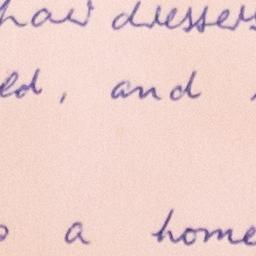 hair dressers
ld, and
a home